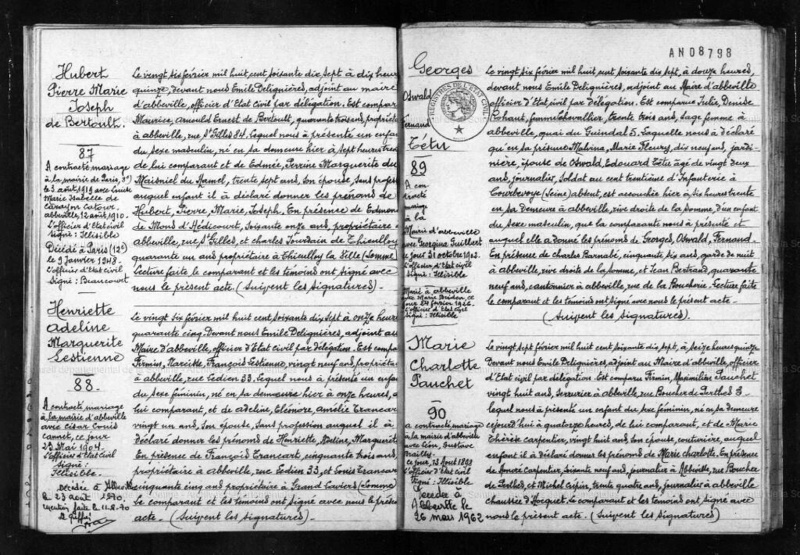 Hubert
Pierre Marie
Joseph
de Bertoult.
87
A contracté mariage
à la mairie de Paris,
le 3 août 1919 avec
Marie Isabelle de
abbeville, 12 août 1910.
L'officier d'Etat civil
Signé : Illisible
Décédé à Paris (12e)
le 9 Janvier 1948.
L'officier d'Etat civil
Signé :
Le vingt six février mil huit cent soixante dix sept à dix heures
quinze, devant nous Emile Delignières, adjoint au maire
d'abbeville, officier d'Etat Civil par délégation. Est comparu
Maurice, arnould Ernest de Bertoult, quarante trois ans, propriétaire
à abbeville, rue St Gilles 24. Lequel nous a présenté un enfant
du sexe masculin, né en sa demeure hier à sept heures
de lui comparant et de Edmée, Perrine Marguerite du
Maisniel du Hamel, trente sept ans, son épouse, sans profession
auquel enfant il a déclaré donner les prénoms de
Hubert, Pierre, Marie, Joseph. En présence de Edmond
de Mons d'Hédicourt, soixante onze ans, propriétaire à
abbeville, rue St Gilles, et Charles Jourdain de Thieulloy
quarante un ans propriétaire à Thieulloy la Ville (Somme)
Lecture faite le comparant et les témoins ont signé avec
nous le présent acte. (Suivent les signatures)
Henriette
adeline
Marguerite
Lestienne
88.
A contracté mariage
à la mairie d'abbeville
avec César Louis
Cannet, ce jour
23 Mai 1904.
L'officier d'Etat Civil
Signé :
Illisible.
Décédée à
le 23 août 1970.
Mention faite le 11.8.70
Le vingt six février mil huit cent soixante dix sept à onze heures
quarante cinq. Devant nous Emile Delignières, adjoint au
Maire d'abbeville, officier d'Etat civil par délégation. Est comparu
Firmin, Narcisse, François Lestienne, vingt neuf ans, propriétaire
à abbeville, rue Ledien 33. Lequel nous a présenté un enfant
du sexe féminin, né en sa demeure hier à onze heures, de
lui comparant, et de adeline, Eléonore, amélie Trancart
vingt un ans, son épouse, sans profession auquel il a
déclaré donner les prénoms de Henriette, adeline, Marguerite
En présence de François Trancart, cinquante trois ans,
propriétaire à abbeville, rue Ledien 33, et Louis Trancart
cinquante cinq ans propriétaire à Grand Laviers (Somme)
le comparant et les témoins ont signé avec nous le présent
acte. (Suivent les signatures)
AN08798
Georges
Oswald
Fernand
Tétu
89
A contracté
mariage
à la
Mairie d'
avec Georgina Guilbert
ce jour 31 octobre 1903.
L'officier d'état civil
Signé : Illisible
Marié à abbeville
Signé : Illisible
Le vingt six février mil huit cent soixante dix sept, à douze heures,
devant nous Emile Delignières, adjoint au Maire d'abbeville
officier d'Etat civil par délégation. Est comparue Julie, Denise
Cohant, femme Chevallier, trente trois ans, sage femme à
abbeville, quai du Guindal 5. Laquelle nous a déclaré
qu'en sa présente Malvina, Marie Fleury, dix neuf ans, jardi-
nière, épouse de Oswald, Edouard Tétu âgé de vingt deux
ans, journalier, soldat au cent trentième d'Infanterie à
Courbevoye (Seine) absent, est accouchée hier à dix heures trente
en sa demeure à abbeville, rive droite de la Somme, d'un enfant
du sexe masculin, que la comparante nous a présenté et
auquel elle a donné les prénoms de Georges, Oswald, Fernand.
En présence de Charles Barnabé, cinquante six ans, garde de nuit
à abbeville, rive droite de la Somme, et Jean Bertrand, quarante
neuf ans, cantonnier à abbeville, rue de la Boucherie. Lecture faite
le comparant et les témoins ont signé avec nous le présent acte.
(Suivent les signatures).
Marie
Charlotte
Pauchet
90
a contracté mariage
à la mairie d'abbeville
avec Léon, Gustave
ce jour, 23 août 1898
L'officier d'état civil
Signé : Illisible
Décédée à
Abbeville le
26 mars 1962
Le vingt sept février mil huit cent soixante dix sept, à seize heures
Devant nous Emile Delignières, adjoint au Maire d'abbeville, officier
d'Etat civil par délégation. Est comparu Firmin, Maximilien Pauchet
vingt huit ans, serrurier à abbeville, rue Boucher de Perthes 3.
lequel nous a présenté un enfant du sexe féminin, né en sa demeure
cejourd'hui à quatorze heures, de lui comparant, et de Marie
Thérèse Carpentier, vingt huit ans, son épouse, couturière, auquel
enfant il a déclaré donner les prénoms de Marie Charlotte. En présence
de Honoré Carpentier, soixante neuf ans, journalier à Abbeville, rue Boucher
de Perthes, et Michel Crépin, trente quatre ans, journalier à abbeville
chaussée d'Hocquet. Le comparant et les témoins ont signé avec
nous le présent acte. (Suivent les signatures)